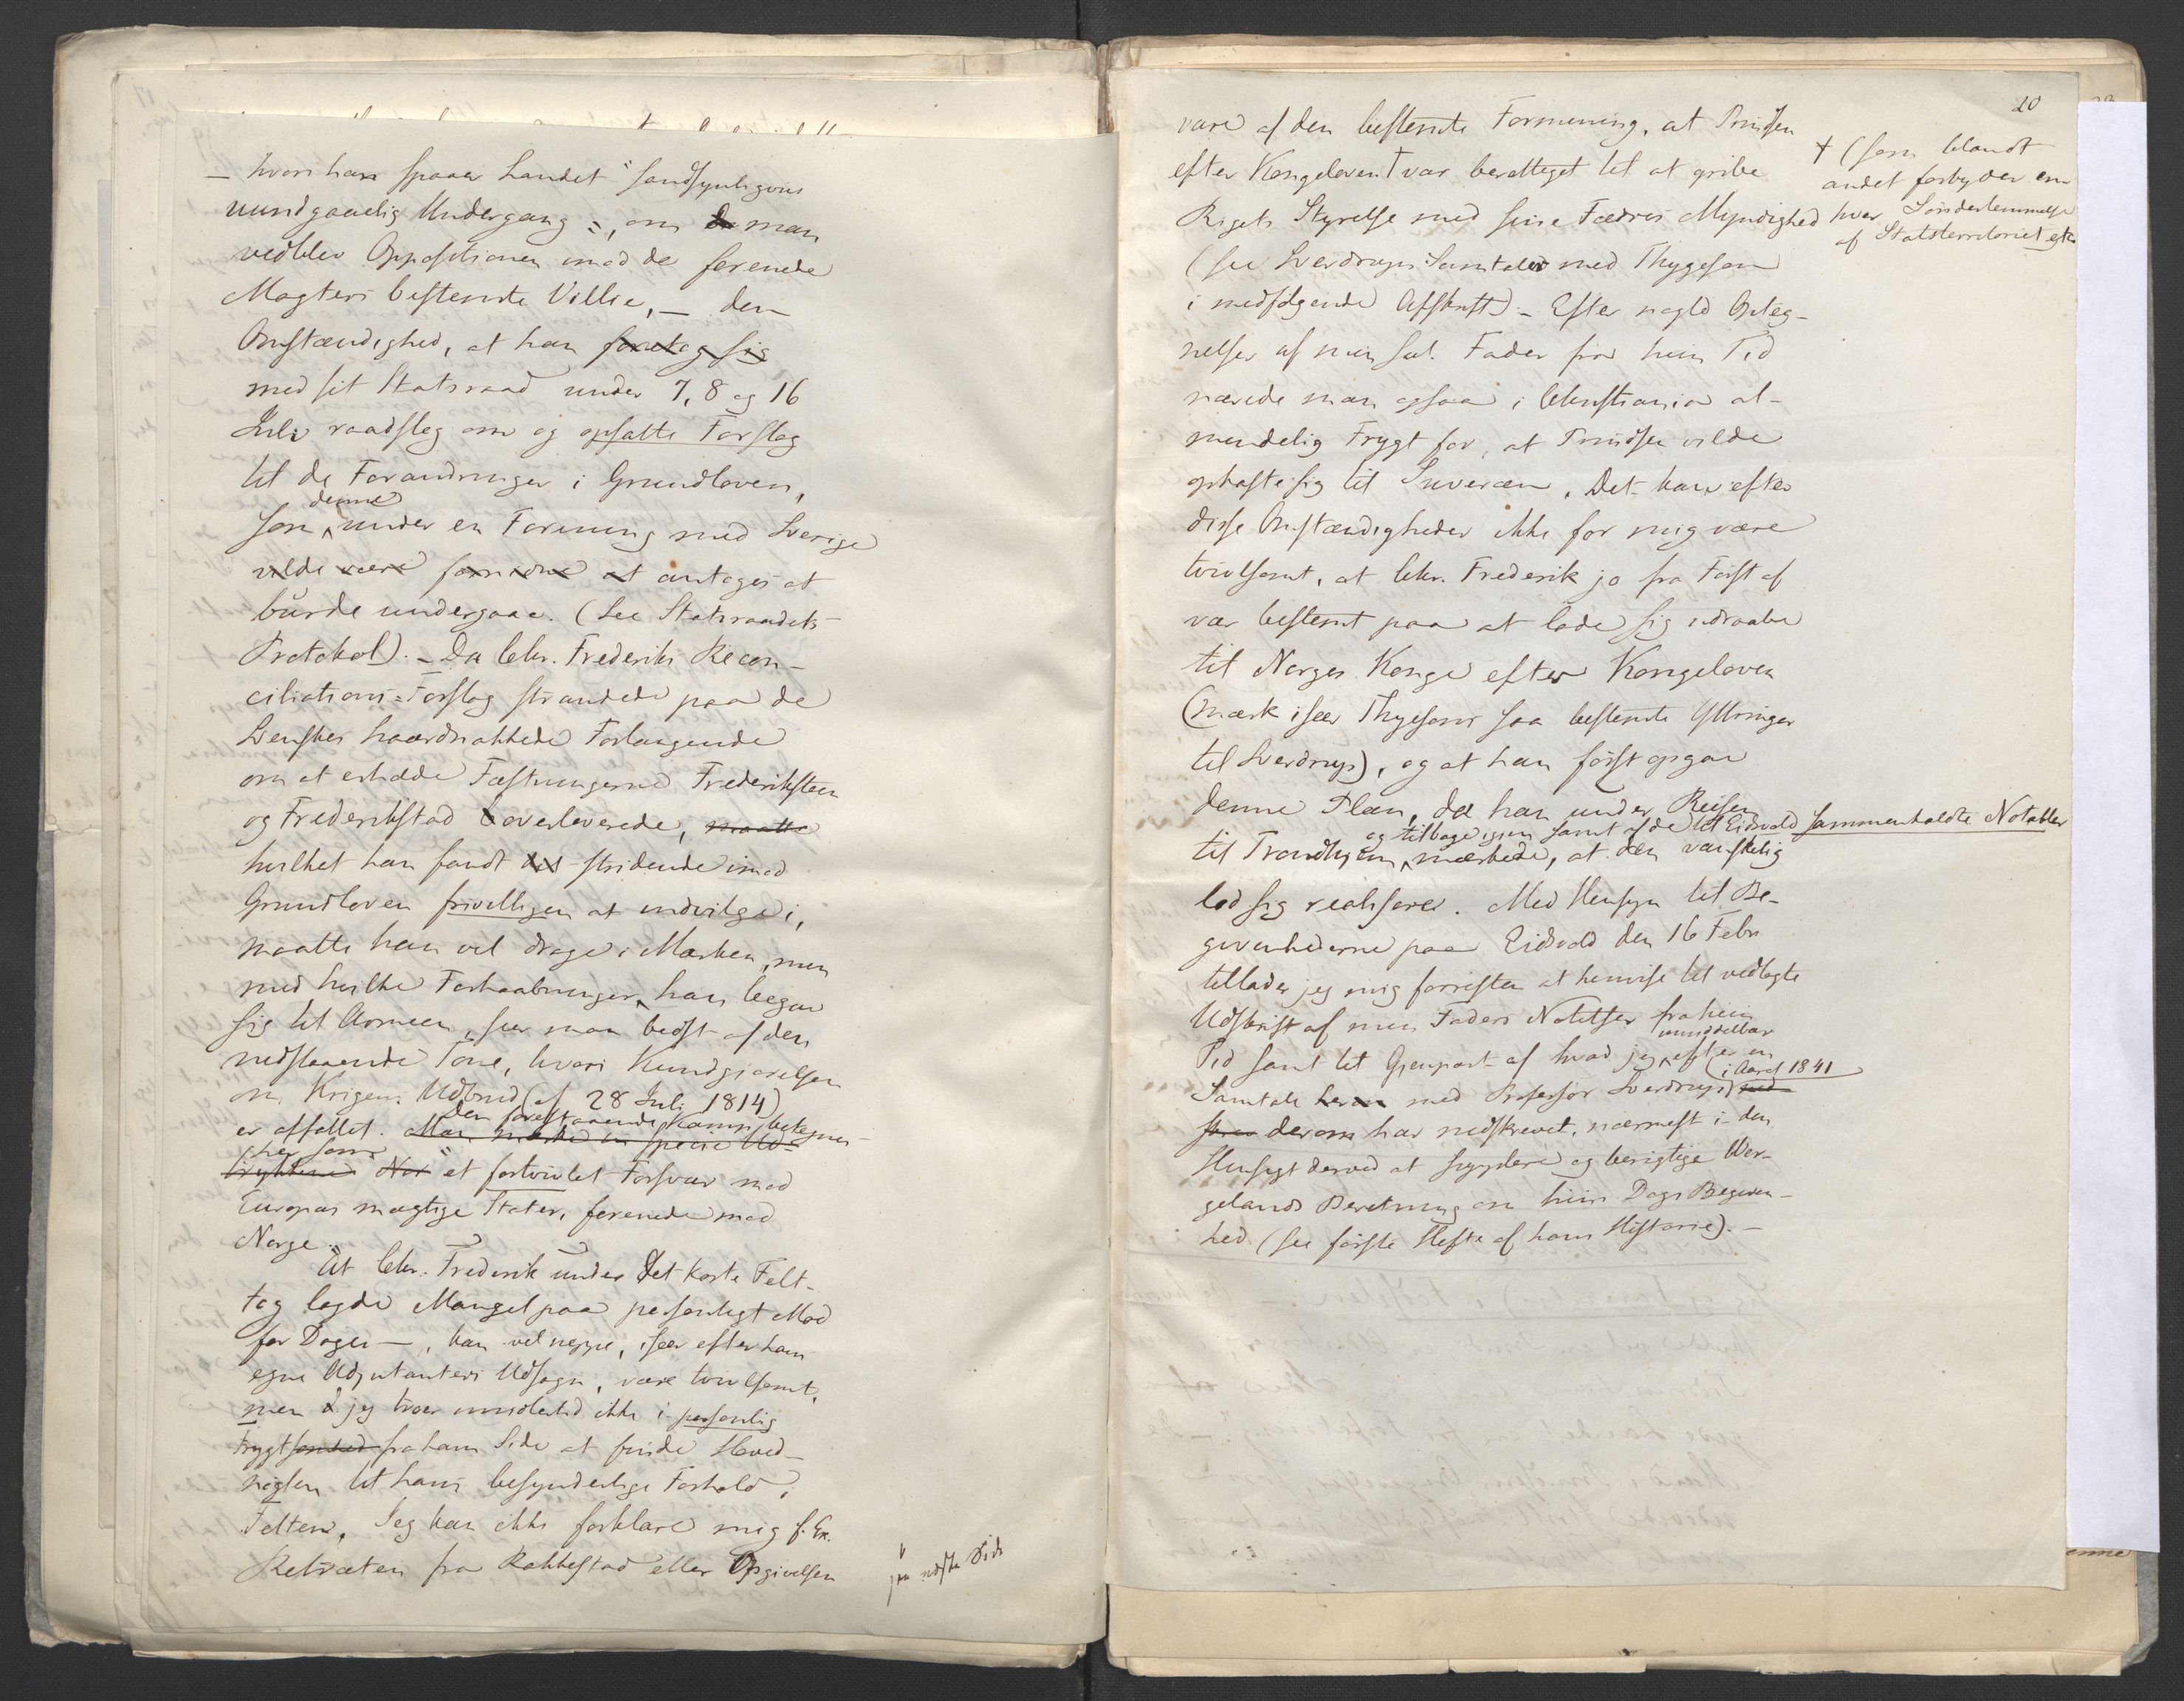 – hvori han spaaer Landet "sandsynligviis
uundgaaelig Undergang", om man
vedblev Oppositionen imod de forenede
Magters bestemte Villie, – den
Omstændighed, at han foretog sig
med sit Statsraad under 7, 8 og 16
Juli raadslog om og opsatte Forslag
til de Forandringer i Grundloven,
denne
som under en Forening med Sverige
vilde være fornødne at antages at
burde undergaae. (See Statsraadets
Protokol). – Da Chr. Frederiks Recon-
ciliations-Forslag strandede paa de
Svenskes haardnakkede Forlangende
om at erholde Fæstningerne Frederiksteen
og Frederikstad overleverede, maatte
hvilket han fandt stridende imod
Grundloven frivilligen at indvilge i,
maatte han vel drage i Marken, men
med hvilke Forhaabninger han begav
sig til Armeen, seer man bedst af den
nedslaaende Tone, hvori Kundgjørelsen
om Krigens Udbrud (af 28 Juli 1814)
den forestaaende Kamp betegnes
er affattet. Man mærke in specie Ud-
her som
trykkene "et fortvivlet Forsvar mod
Europas mægtige Stater, forenede mod
Norge".
At Chr. Frederik under det korte Felt-
tog lagde Mangel paa personligt Mod
for Dagen –, kan vel neppe, især efter hans
egne Adjutanters Udsagn, være tvivlsomt,
men jeg troer imidlertid ikke i personlig
Frygtsomhed fra hans Side at finde Hoved-
nøglen til hans besynderlige Forhold i
Felten. Jeg kan ikke forklare mig f. Ex.
Retræten fra Rakkestad eller Opgivelsen
paa næste Side
20
vare af den bestemte Formening, at Prindsen
efter Kongeloven † var berettiget til at gribe
Rigets Styrelse med sine Fædres Myndighed
† (som blandt
andet forbyder en-
hver Sønderlemmelse
af Statsterritoriet etc.
(see Sverdrups Samtaler med Thygeson
i medfølgende Afskrift). – Efter nogle Opteg-
nelser af min sal. Fader fra hiin Tid
nærede man ogsaa i Christiania al-
mindelig Frygt for, at Prindsen vilde
ophøste sig til Suveræn. Det kan efter
disse Omstændigheder ikke for mig være
tvivlsomt, at Chr. Frederik jo fra Først af
var bestemt paa at lade sig udraabe
til Norges Konge efter Kongeloven
(mærk især Thygesons saa bestemte Yttringer
til Sverdrup), og at han først opgav
denne Plan, da han under Reisen
og tilbage igjen samt af de til Eidsvold sammenkaldte Notabler
til Trondhjem mærkede, at den vanskelig
lod sig realisere. Med Hensyn til Be-
givenhederne paa Eidsvold den 16 Febr
tillader jeg mig forresten at henvise til vedlagte
Udskrift af min Faders Notitser fra hiin
umiddelbar
Tid samt til Gjenpart af hvad jeg efter en
i Aaret 1841
Samtale med Professor Sverdrup
derom har nedskrevet, nærmest i den
Hensigt derved at supplere og berigtige Wer-
gelands Beretning om hiin Dags Begiven-
hed (see første Hefte af hans Historie). –